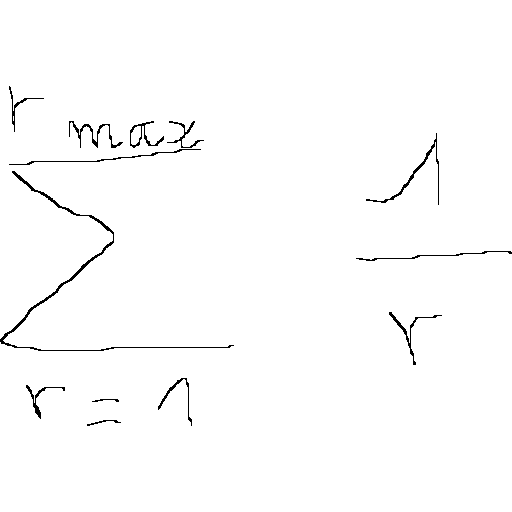 \sum_{r=1}^{r_{max}} \frac{1}{r}